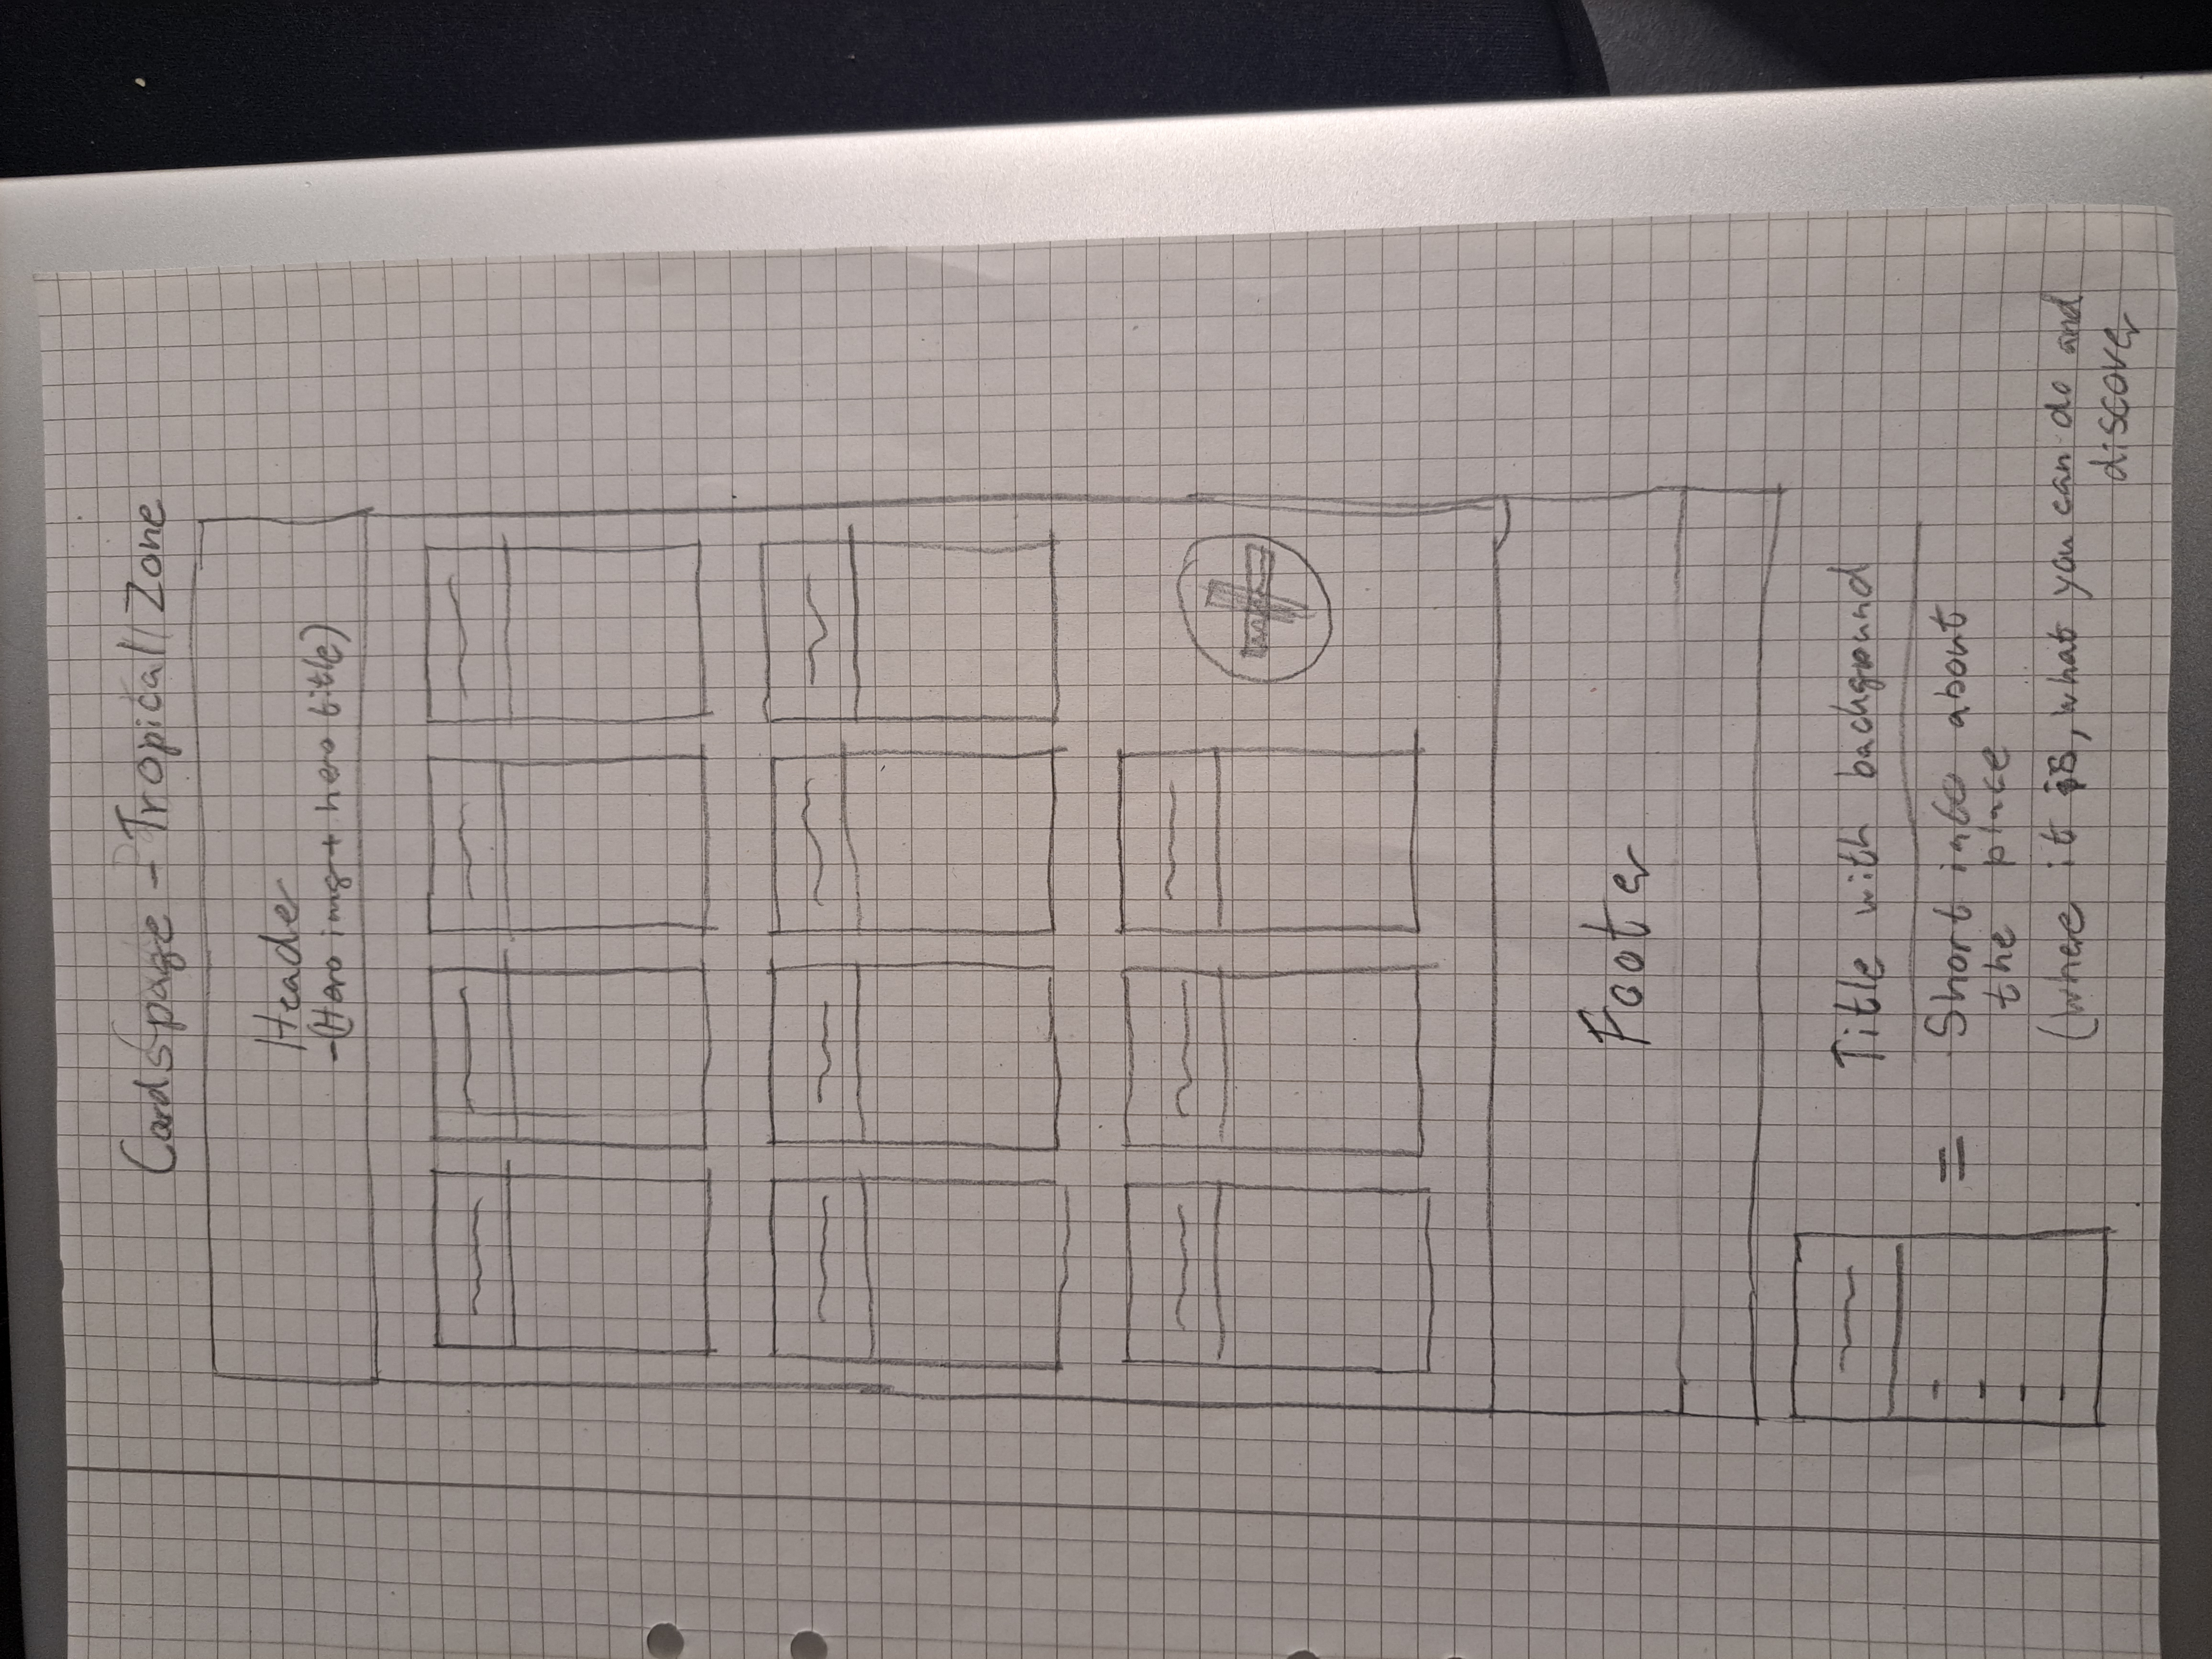 Cards page - Tropical Zone
Header
-(Hero img + hero title)
Footer
Title with background
=
Short info about
the place
(where it is, what you can do and
discover